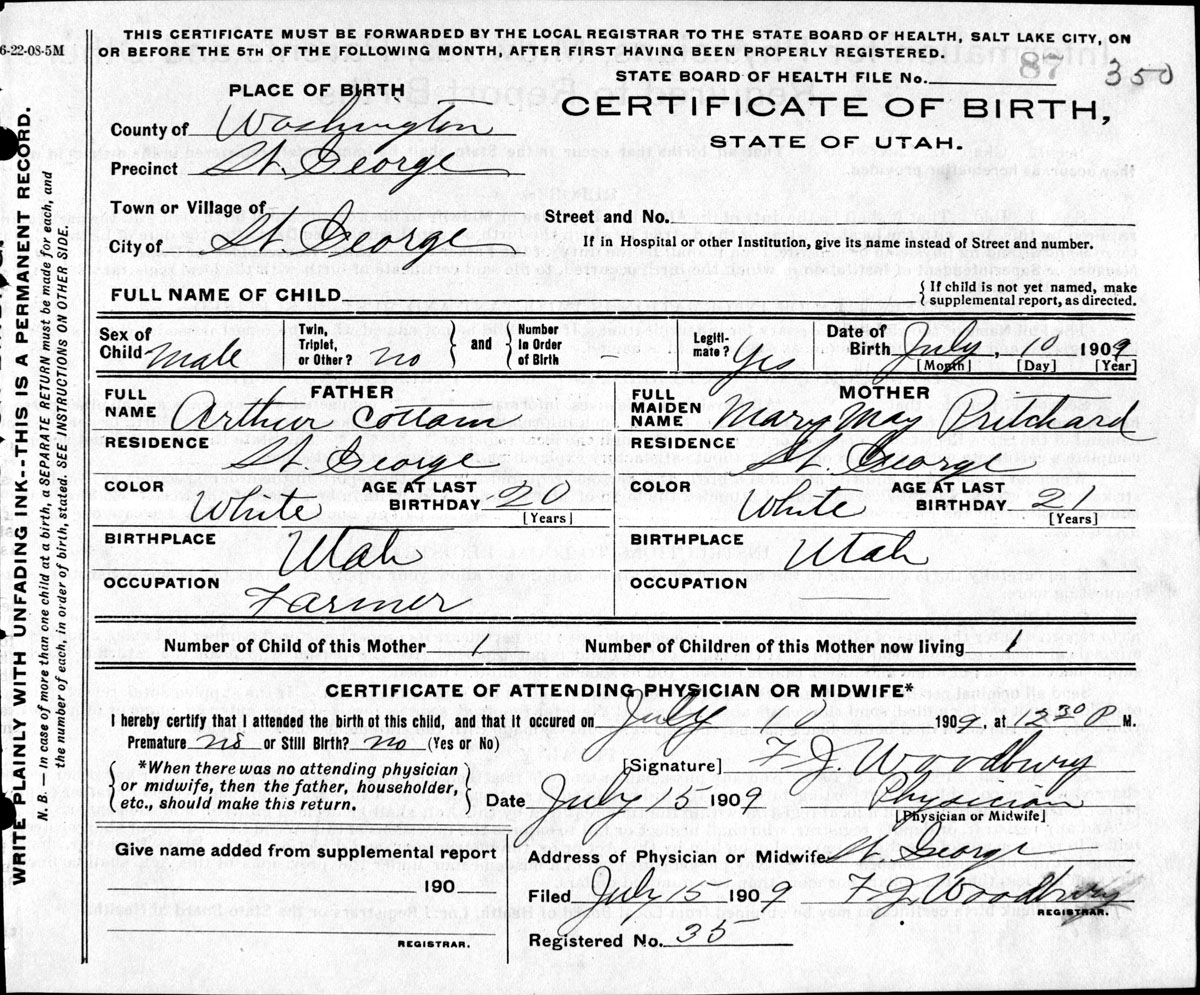 6-22-08-5M
THIS CERTIFICATE MUST BE FORWARDED BY THE LOCAL REGISTRAR TO THE STATE BOARD OF HEALTH, SALT LAKE CITY, ON
OR BEFORE THE 5TH OF THE FOLLOWING MONTH, AFTER FIRST HAVING BEEN PROPERLY REGISTERED.
STATE BOARD OF HEALTH FILE No. 87 350
PLACE OF BIRTH
CERTIFICATE OF BIRTH,
STATE OF UTAH.
County of Washington
Precinct St. George
Town or Village of
City of St. George
Street and No.
If in Hospital or other Institution, give its name instead of Street and number.
FULL NAME OF CHILD
{ If child is not yet named, make
supplemental report, as directed.
Sex of Child Male
Twin, Triplet, or Other? no } and { Number in Order of Birth –
Legiti-mate? Yes
Date of Birth July, 10 1909
[Month] [Day] [Year]
FATHER
FULL NAME Arthur Cottam
RESIDENCE St. George
COLOR White AGE AT LAST BIRTHDAY 20 [Years]
BIRTHPLACE Utah
OCCUPATION Farmer
MOTHER
FULL MAIDEN NAME Mary May Pritchard
RESIDENCE St. George
COLOR White AGE AT LAST BIRTHDAY 21 [Years]
BIRTHPLACE Utah
OCCUPATION
Number of Child of this Mother 1 Number of Children of this Mother now living 1
CERTIFICATE OF ATTENDING PHYSICIAN OR MIDWIFE*
I hereby certify that I attended the birth of this child, and that it occured on July 1909, at 12 30 P M.
Premature no or Still Birth? no (Yes or No)
{ *When there was no attending physician
or midwife, then the father, householder,
etc., should make this return. }
[Signature] F. J. Woodbury
Date July 15 1909 Physician
[Physician or Midwife]
Give name added from supplemental report
190
REGISTRAR.
Address of Physician or Midwife St. George
Filed July 15 1909 F J Woodbury
REGISTRAR.
Registered No. 35
WRITE PLAINLY WITH UNFADING INK--THIS IS A PERMANENT RECORD.
N. B. — In case of more than one child at a birth, a SEPARATE RETURN must be made for each, and
the number of each, in order of birth, stated. SEE INSTRUCTIONS ON OTHER SIDE.